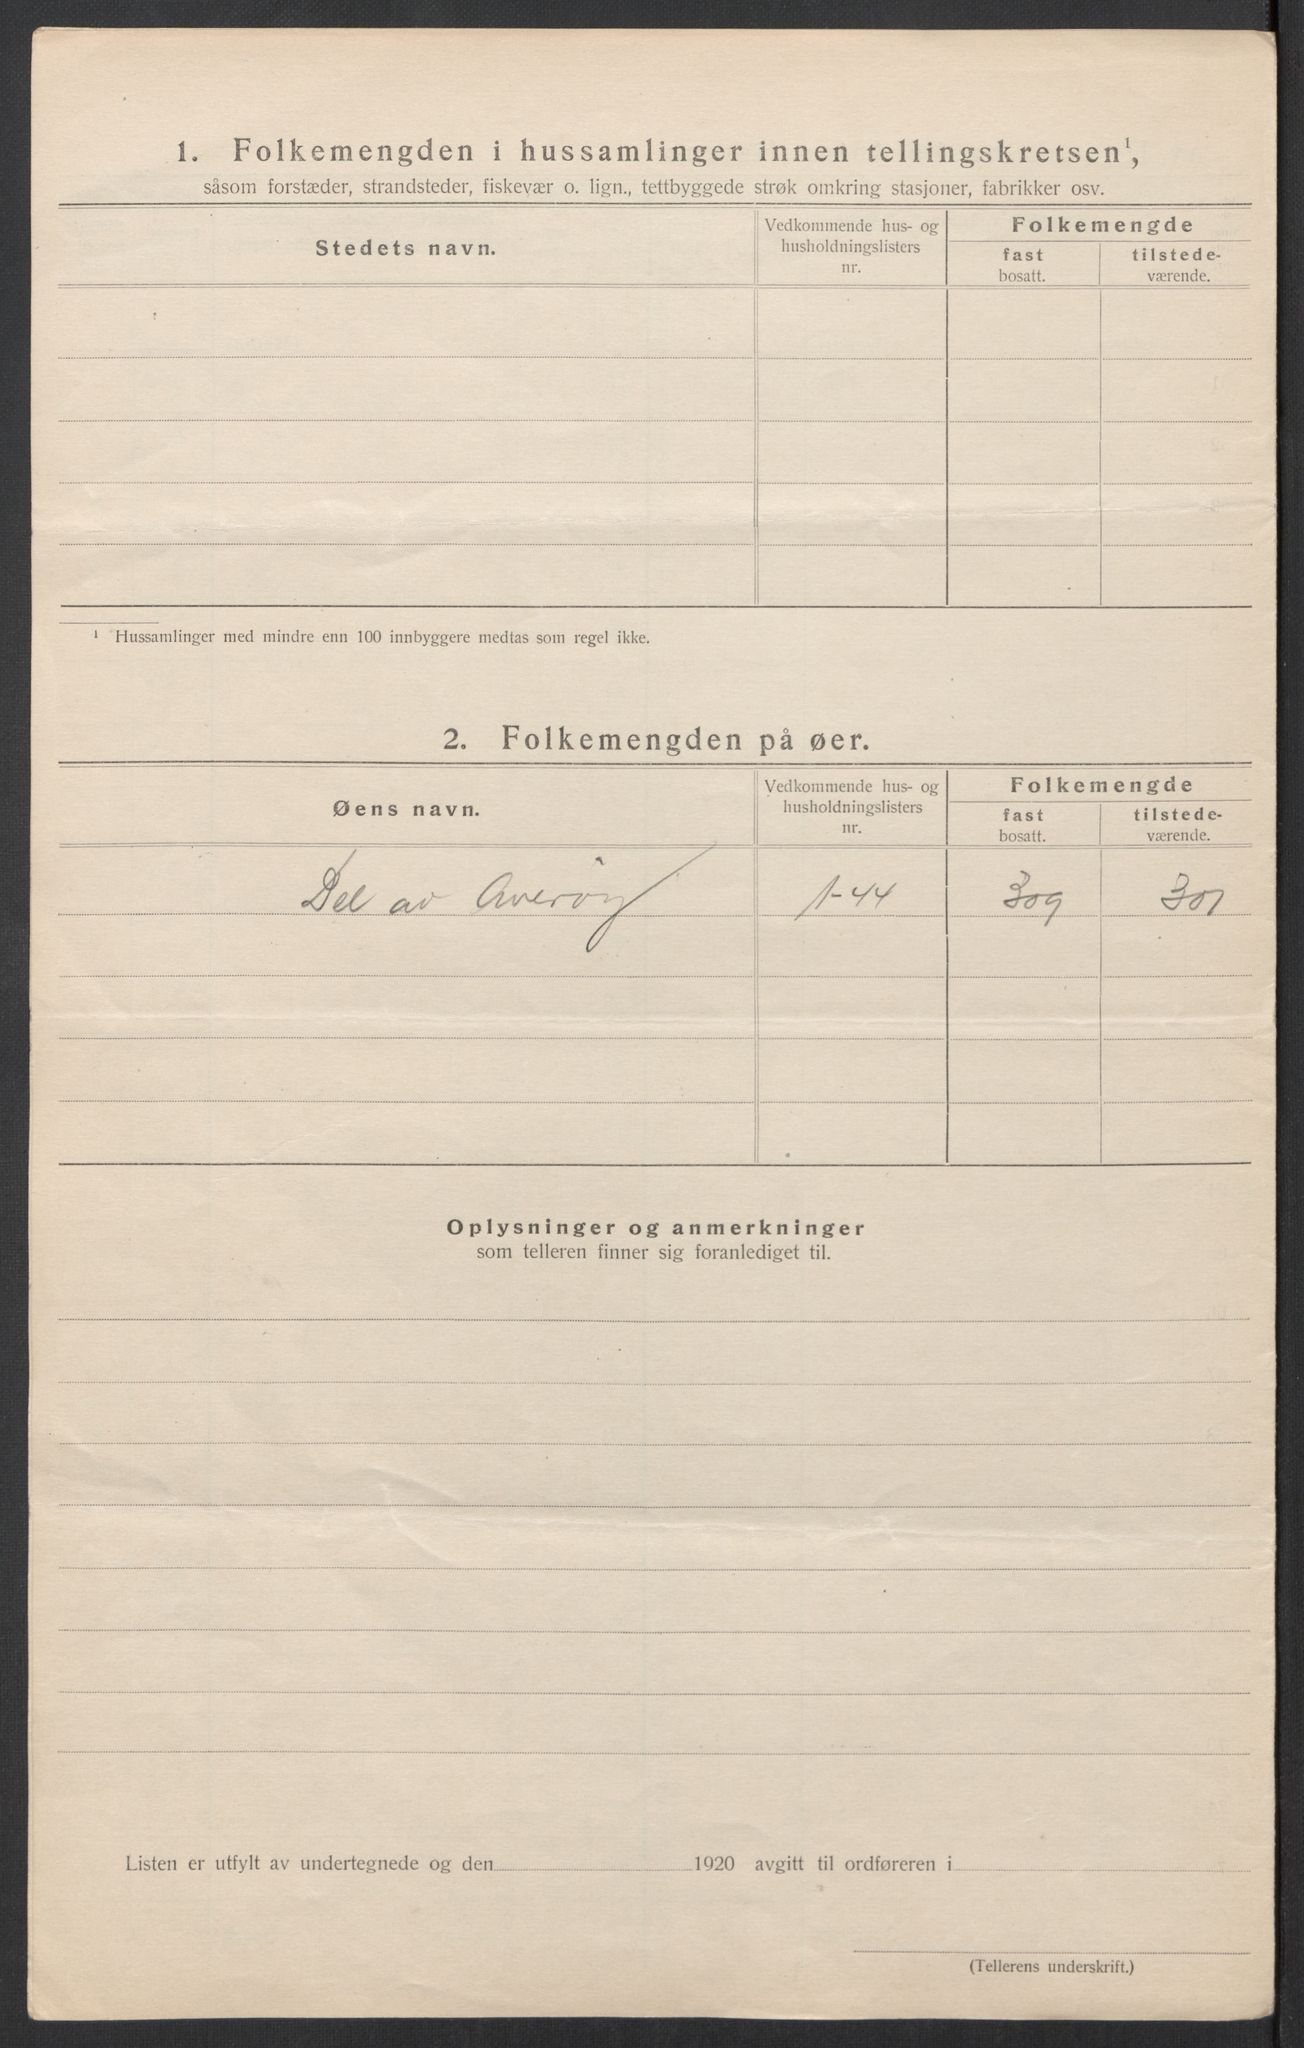 1. Folkemengden i hussamlinger innen tellingskretsen¹,
såsom forstæder, strandsteder, fiskevær o. lign., tettbyggede strøk omkring stasjoner, fabrikker osv.
Stedets navn.
Vedkommende hus- og
husholdningslisters
nr.
Folkemengde
fast
bosatt.
tilstede-
værende.
¹ Hussamlinger med mindre enn 100 innbyggere medtas som regel ikke.
2. Folkemengden på øer.
Øens navn.
Vedkommende hus- og
husholdningslisters
nr.
Folkemengde
fast
bosatt.
tilstede-
værende.
Del av Averøy 1-44 309 301
Oplysninger og anmerkninger
som telleren finner sig foranlediget til.
Listen er utfylt av undertegnede og den 1920 avgitt til ordføreren i
(Tellerens underskrift.)